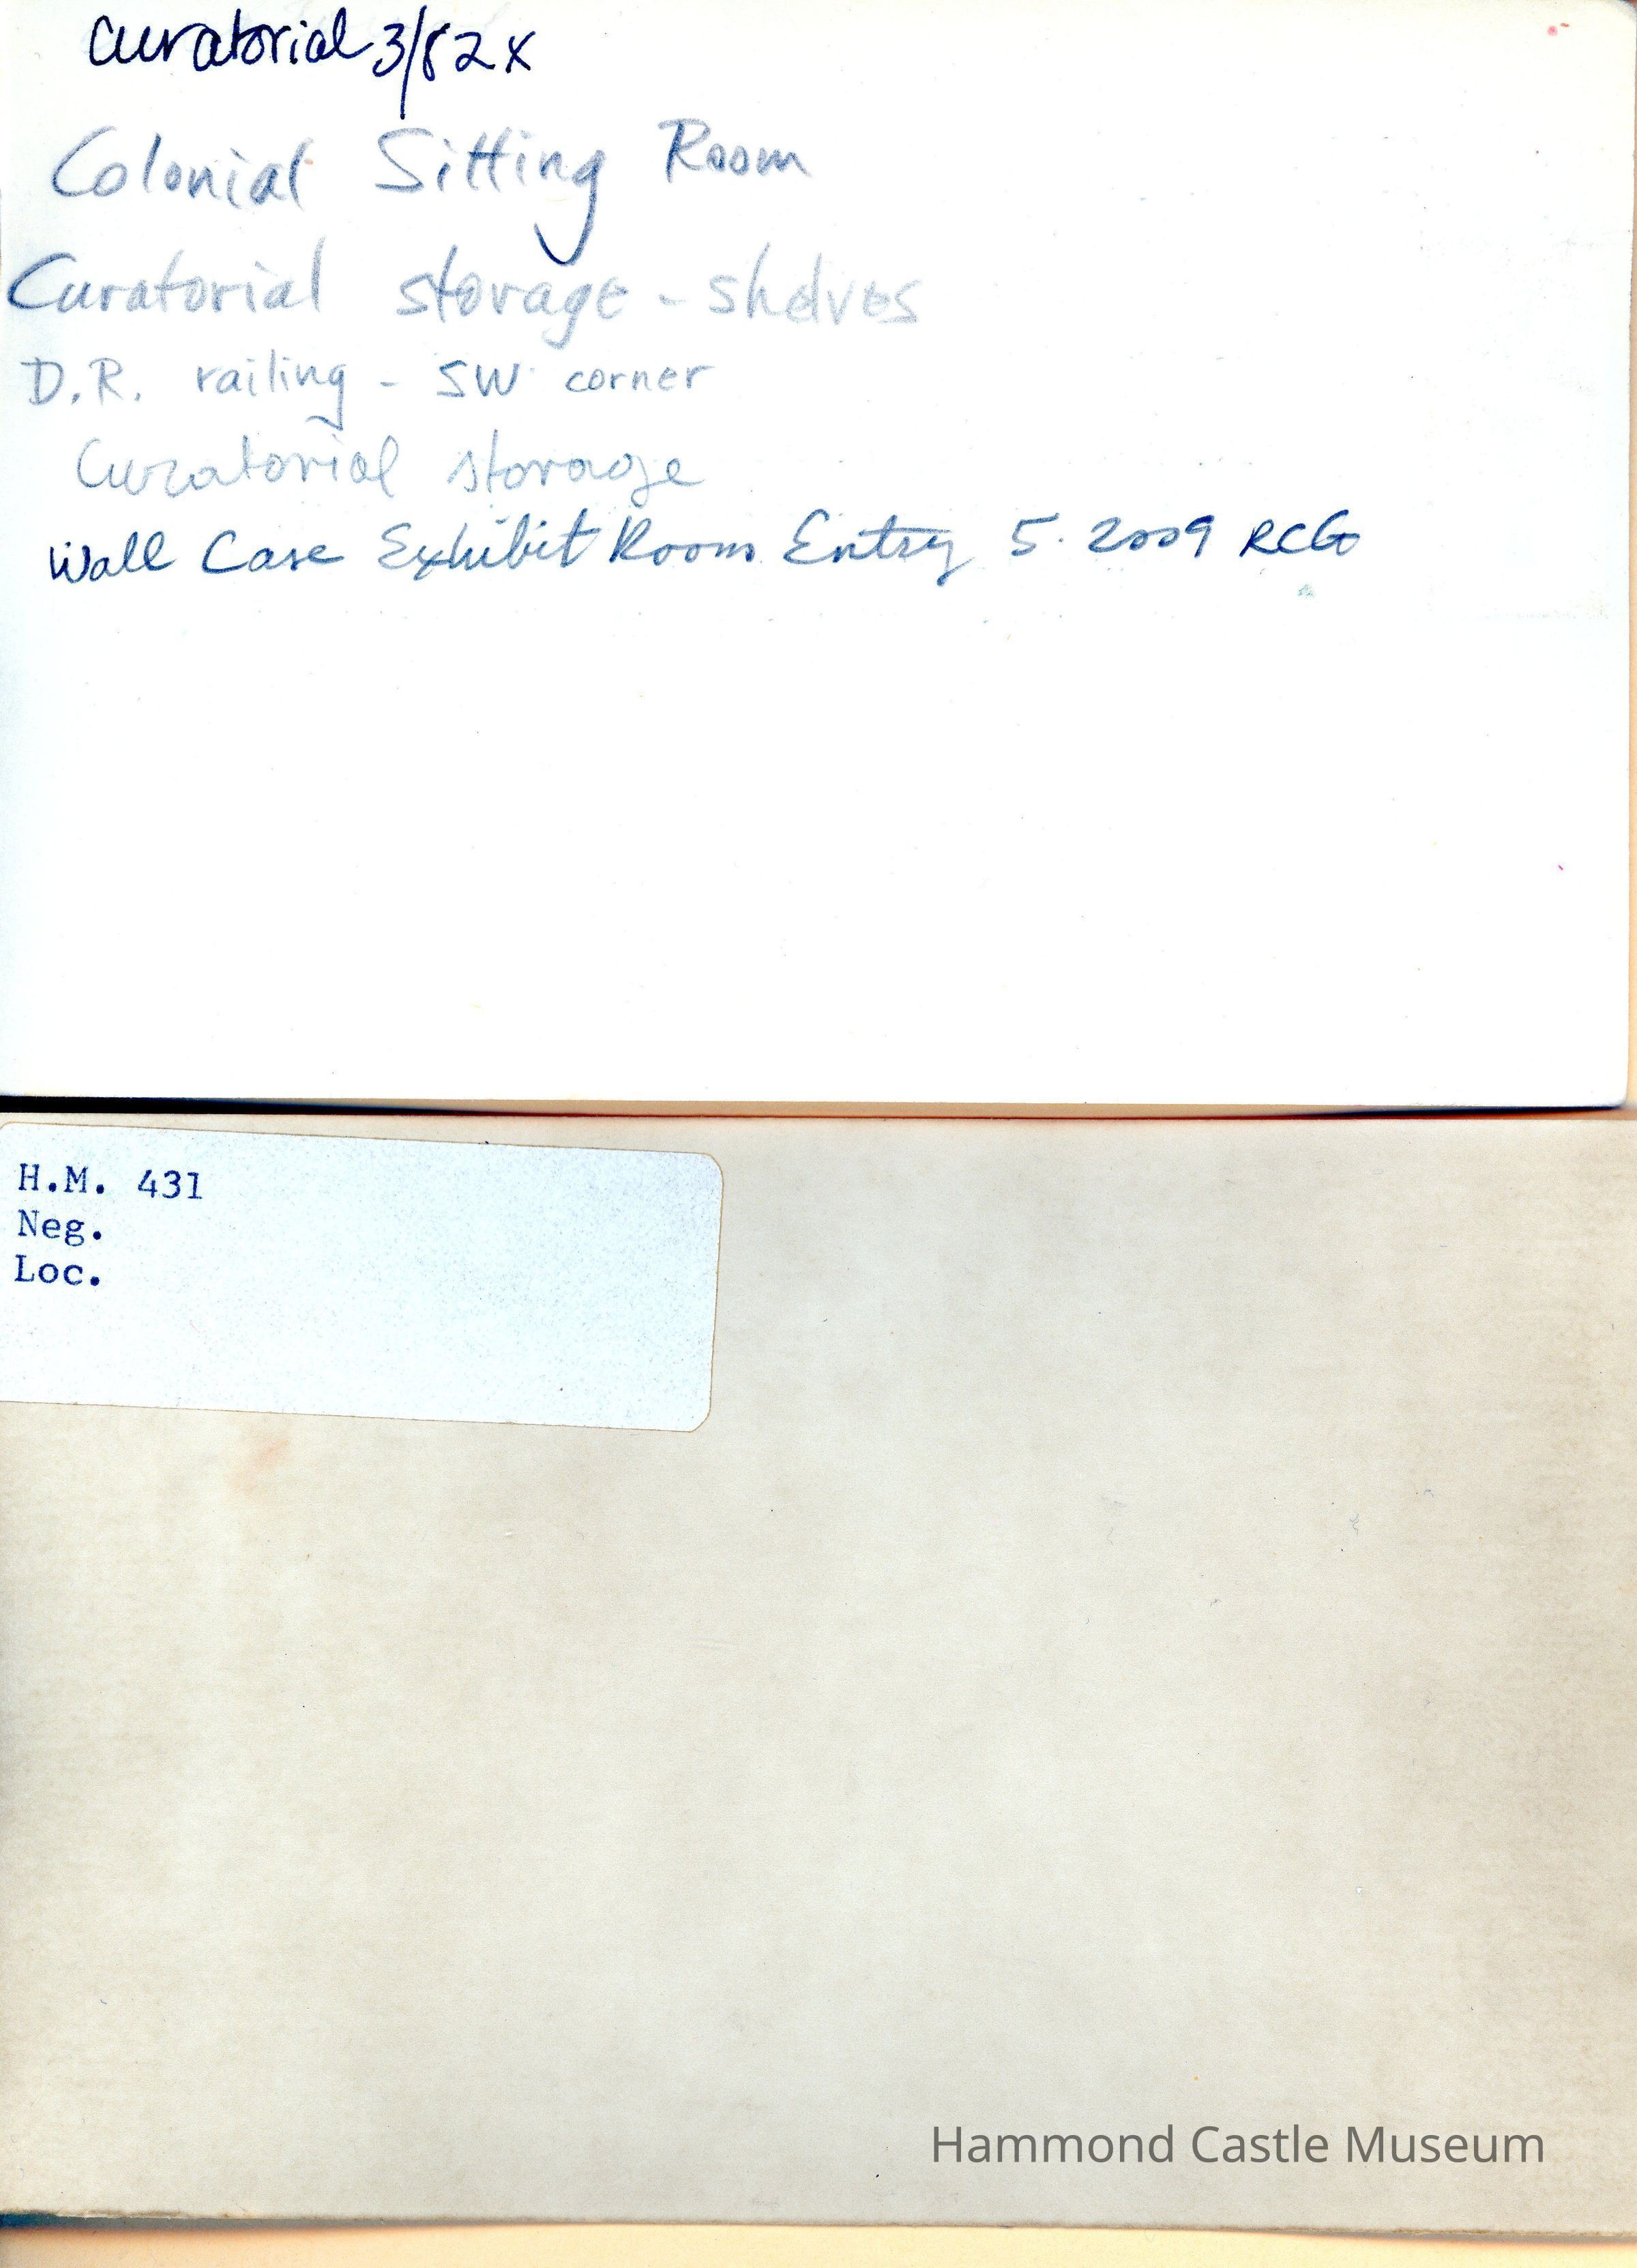 Curatorial 3/82 x
Colonial Sitting Room
Curatorial storage - shelves
D.R. railing - SW corner
Curatorial storage
Wall Case Exhibit Room Entry 5. 2009 RCG
H.M. 431
Neg.
Loc.
Hammond Castle Museum